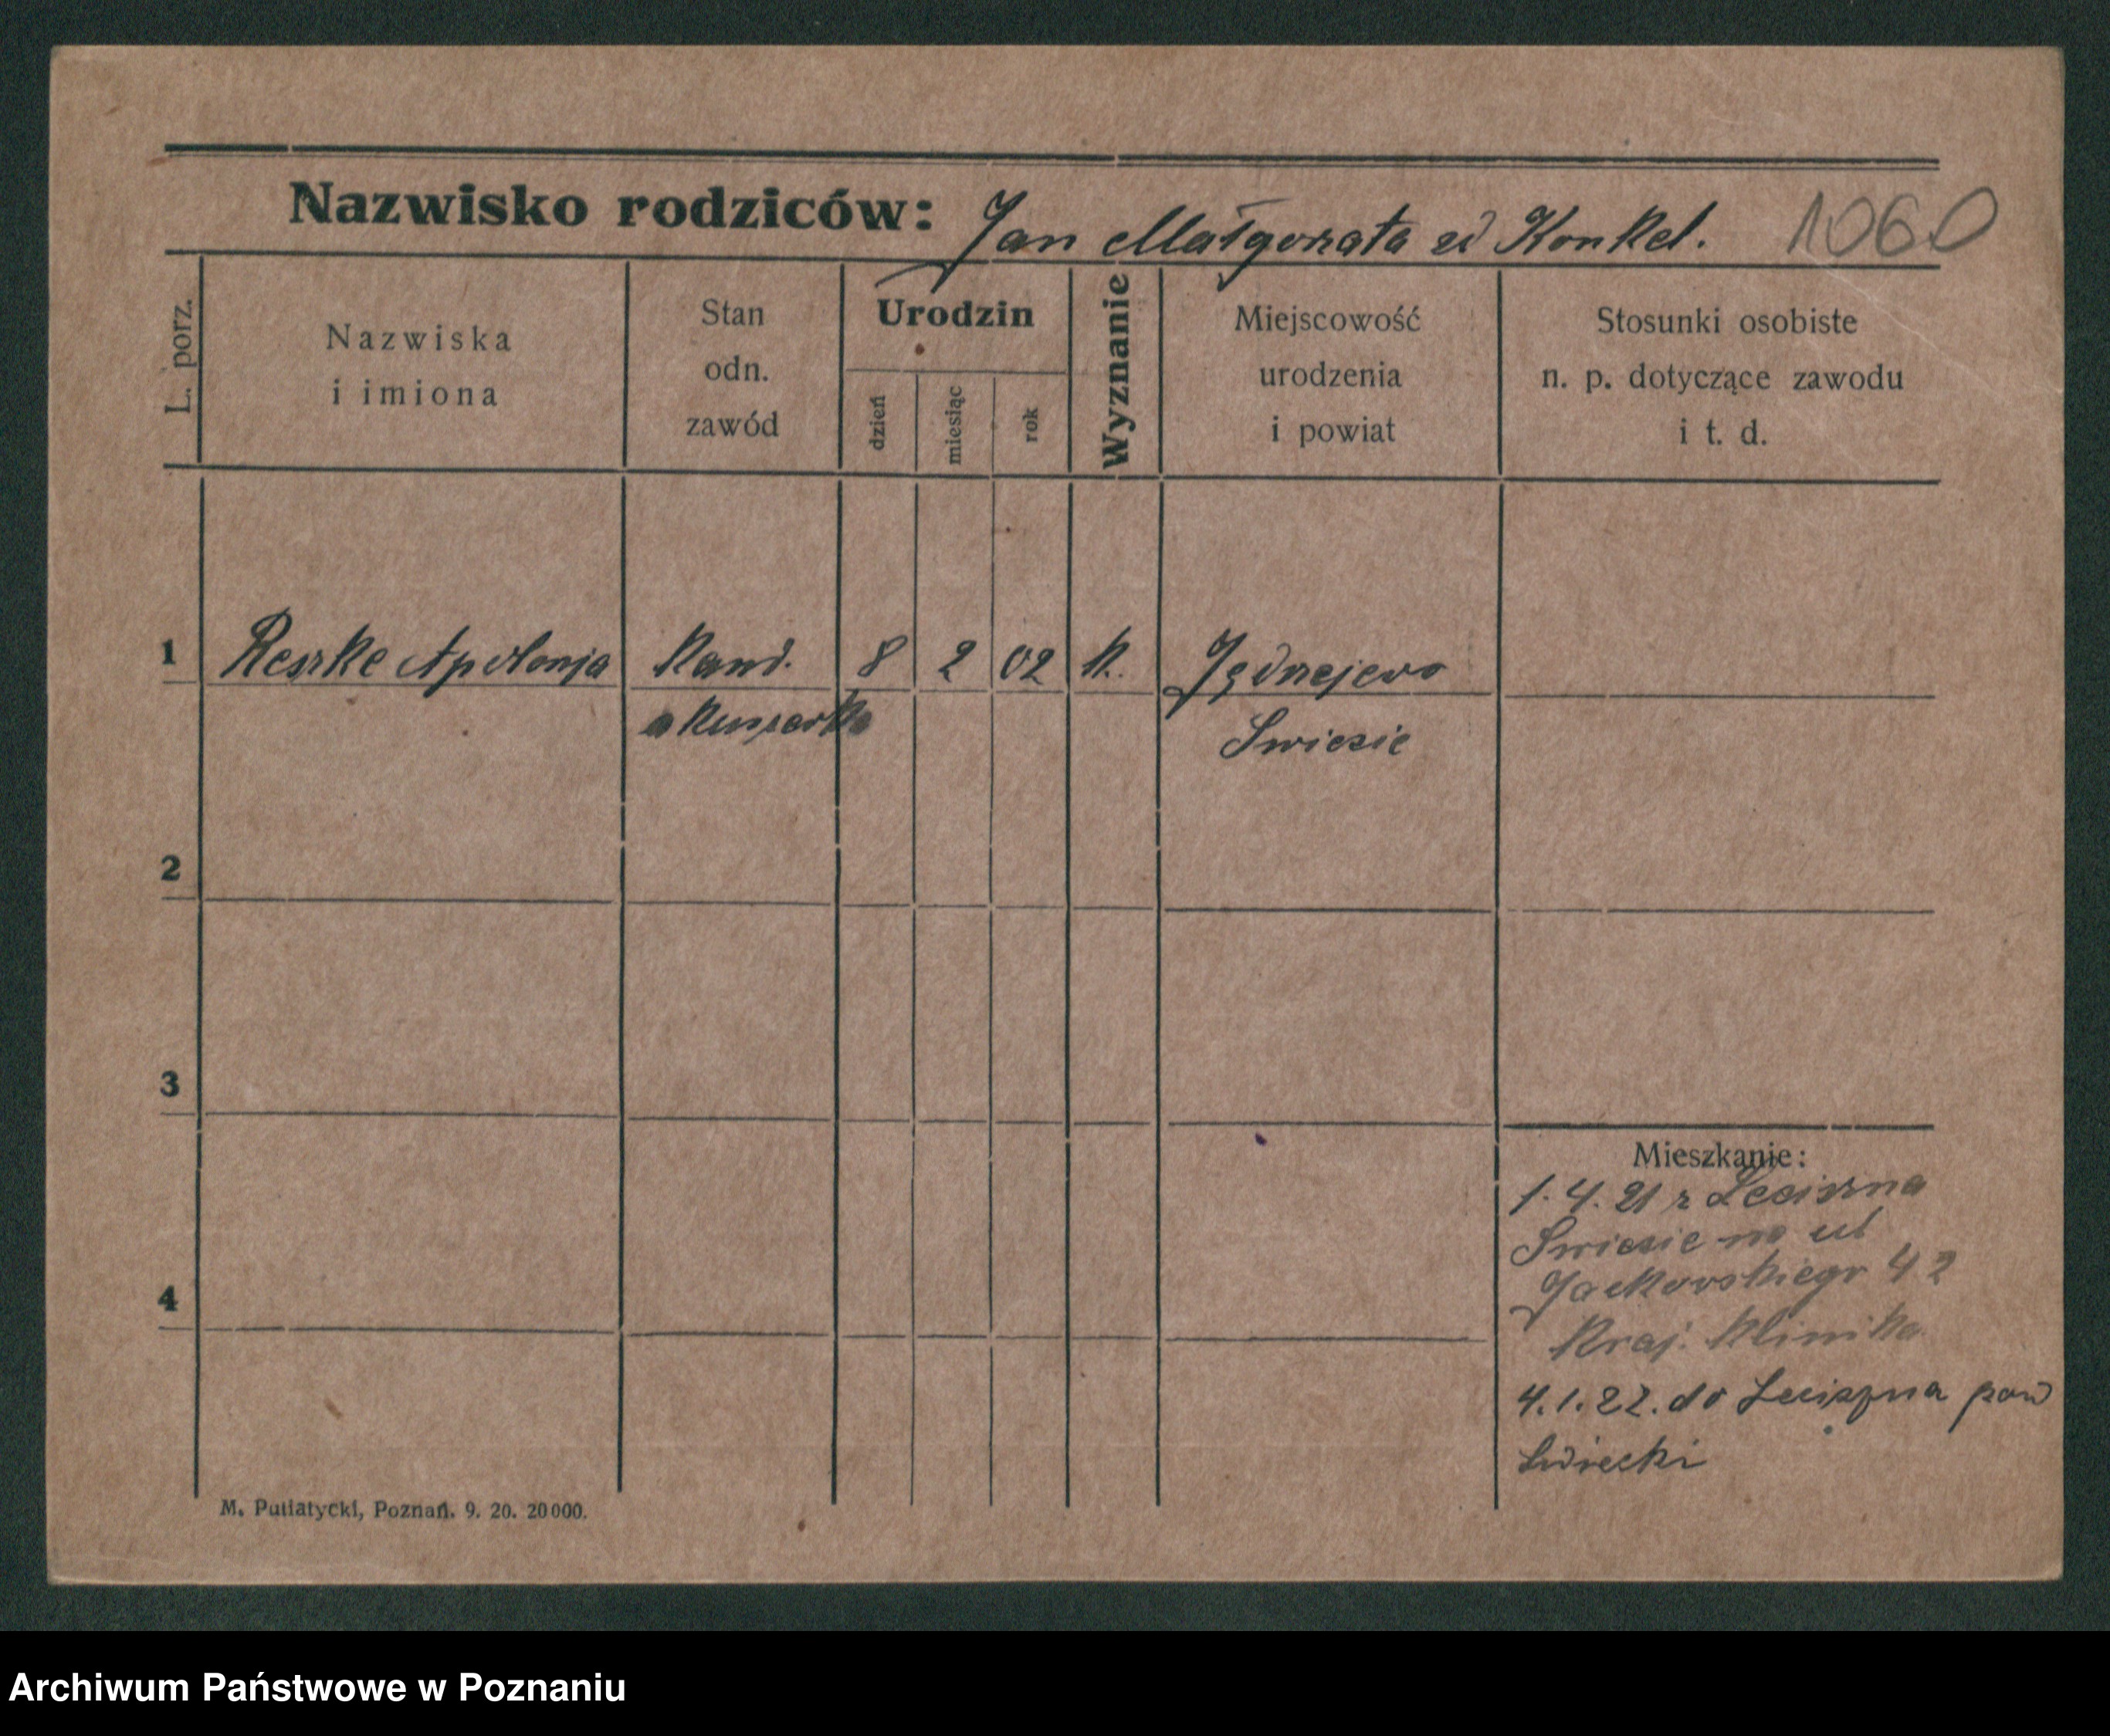 Nazwisko rodziców: Jan Małgorzata zd Konkel. 1060
L. porz.
Nazwiska
i imiona
Stan
odn.
zawód
Urodzin
dzień
miesiąc
rok
Wyznanie
Miejscowość
urodzenia
i powiat
Stosunki osobiste
n. p. dotyczące zawodu
i t. d.
1 Reszke Apolonja Kand. 8 2 02 k.
akuszerka Swiecie
2
3
4
Mieszkanie:
1. 4. 21 z
Swiecie na ul
Jackowskiego 42
Kraj. Klinika
4.1.22. do pow
Swiecki
M. Putiatycki, Poznań. 9. 20. 20000.
Archiwum Państwowe w Poznaniu